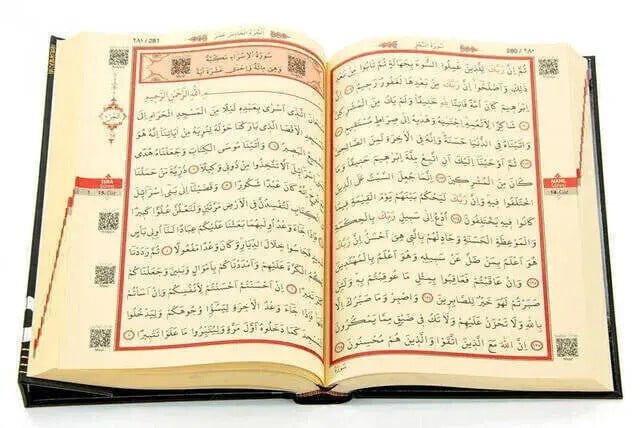 سُورَةُ النَّحْلِ
280 / ٢٨٠
ثُمَّ اِنَّ رَبَّكَ لِلَّذٖينَ عَمِلُوا السُّٓوءَ بِجَهَالَةٍ ثُمَّ تَابُوا مِنْ بَعْدِ
ذٰلِكَ وَاَصْلَحُٓوا اِنَّ رَبَّكَ مِنْ بَعْدِهَا لَغَفُورٌ رَحٖيمٌ اِنَّ
اِبْرٰهٖيمَ كَانَ اُمَّةً قَانِتًا لِلّٰهِ حَنٖيفًا وَلَمْ يَكُ مِنَ الْمُشْرِكٖينَ
شَاكِرًا لِاَنْعُمِهٖ اِجْتَبٰيهُ وَهَدٰيهُ اِلٰى صِرَاطٍ مُسْتَقٖيمٍ
وَاٰتَيْنَاهُ فِي الدُّنْيَا حَسَنَةً وَاِنَّهُ فِي الْاٰخِرَةِ لَمِنَ الصَّالِحٖينَ
ثُمَّ اَوْحَيْنَٓا اِلَيْكَ اَنِ اتَّبِعْ مِلَّةَ اِبْرٰهٖيمَ حَنٖيفًا وَمَا
كَانَ مِنَ الْمُشْرِكٖينَ اِنَّمَا جُعِلَ السَّبْتُ عَلَى الَّذٖينَ
اخْتَلَفُوا فٖيهِ وَاِنَّ رَبَّكَ لَيَحْكُمُ بَيْنَهُمْ يَوْمَ الْقِيٰمَةِ فٖيمَا
كَانُوا فٖيهِ يَخْتَلِفُونَ اُدْعُ اِلٰى سَبٖيلِ رَبِّكَ بِالْحِكْمَةِ
وَالْمَوْعِظَةِ الْحَسَنَةِ وَجَادِلْهُمْ بِالَّتٖي هِيَ اَحْسَنُ اِنَّ رَبَّكَ
هُوَ اَعْلَمُ بِمَنْ ضَلَّ عَنْ سَبٖيلِهٖ وَهُوَ اَعْلَمُ بِالْمُهْتَدٖينَ
وَاِنْ عَاقَبْتُمْ فَعَاقِبُوا بِمِثْلِ مَا عُوقِبْتُمْ بِهٖ وَلَئِنْ
صَبَرْتُمْ لَهُوَ خَيْرٌ لِلصَّابِرٖينَ وَاصْبِرْ وَمَا صَبْرُكَ اِلَّا
بِاللّٰهِ وَلَا تَحْزَنْ عَلَيْهِمْ وَلَا تَكُ فٖي ضَيْقٍ مِمَّا يَمْكُرُونَ
اِنَّ اللّٰهَ مَعَ الَّذٖينَ اتَّقَوْا وَالَّذٖينَ هُمْ مُحْسِنُونَ
سُورَةُ
NAHL
14. Cüz
اَلْجُزْءُ الْخَامِسُ عَشَرَ
٢٨١ / 281
سُورَةُ الْاِسْرَاءِ مَكِّيَّةٌ
وَهِيَ مِائَةٌ وَاِحْدٰى عَشْرَةَ اٰيَةً
بِسْمِ اللّٰهِ الرَّحْمٰنِ الرَّحٖيمِ
سُبْحَانَ الَّذٖٓي اَسْرٰى بِعَبْدِهٖ لَيْلًا مِنَ الْمَسْجِدِ الْحَرَامِ اِلَى
الْمَسْجِدِ الْاَقْصَا الَّذٖي بَارَكْنَا حَوْلَهُ لِنُرِيَهُ مِنْ اٰيَاتِنَا اِنَّهُ هُوَ
السَّمٖيعُ الْبَصٖيرُ وَاٰتَيْنَا مُوسَى الْكِتَابَ وَجَعَلْنَاهُ هُدًى
لِبَنٖٓي اِسْرَٓائٖلَ اَلَّا تَتَّخِذُوا مِنْ دُونٖي وَكٖيلًا ذُرِّيَّةَ مَنْ حَمَلْنَا
مَعَ نُوحٍ اِنَّهُ كَانَ عَبْدًا شَكُورًا وَقَضَيْنَٓا اِلٰى بَنٖٓي اِسْرَٓائٖلَ
فِي الْكِتَابِ لَتُفْسِدُنَّ فِي الْاَرْضِ مَرَّتَيْنِ وَلَتَعْلُنَّ عُلُوًّا كَبٖيرًا
فَاِذَا جَٓاءَ وَعْدُ اُولٰيهُمَا بَعَثْنَا عَلَيْكُمْ عِبَادًا لَنَٓا اُولٖي بَأْسٍ
شَدٖيدٍ فَجَاسُوا خِلَالَ الدِّيَارِ وَكَانَ وَعْدًا مَفْعُولًا ثُمَّ رَدَدْنَا
لَكُمُ الْكَرَّةَ عَلَيْهِمْ وَاَمْدَدْنَاكُمْ بِاَمْوَالٍ وَبَنٖينَ وَجَعَلْنَاكُمْ
اَكْثَرَ نَفٖيرًا اِنْ اَحْسَنْتُمْ اَحْسَنْتُمْ لِاَنْفُسِكُمْ وَاِنْ اَسَأْتُمْ
فَلَهَا فَاِذَا جَٓاءَ وَعْدُ الْاٰخِرَةِ لِيَسُٓؤُا وُجُوهَكُمْ وَلِيَدْخُلُوا
الْمَسْجِدَ كَمَا دَخَلُوهُ اَوَّلَ مَرَّةٍ وَلِيُتَبِّرُوا مَا عَلَوْا تَتْبٖيرًا
ISRÂ
15. Cüz